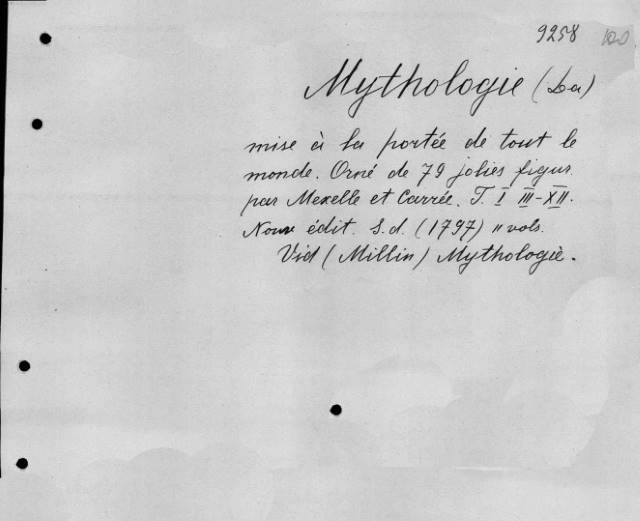 9258
Mythologie (La)
mise à la portée de tout le
monde. Orné de 79 jolies figur.
par Mexelle et Carrée. T. I III-XII.
Nouv édit. S.d. (1797) 11 vols.
Vid (Millin) Mythologie.